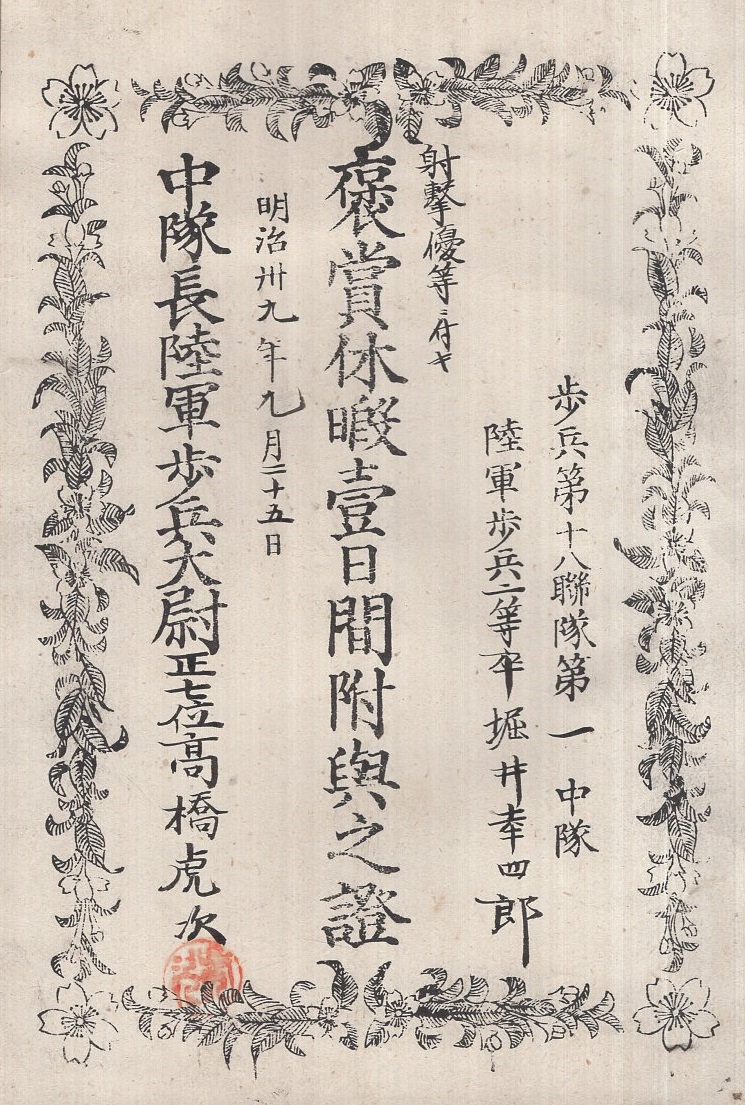 歩兵第十八聯隊第一中隊
陸軍歩兵二等卒堀井幸四郎
射撃優等ニ付キ
褒賞休暇壹日間附與之證
明治卅九年九月二十五日
中隊長陸軍歩兵大尉正七位高橋虎次